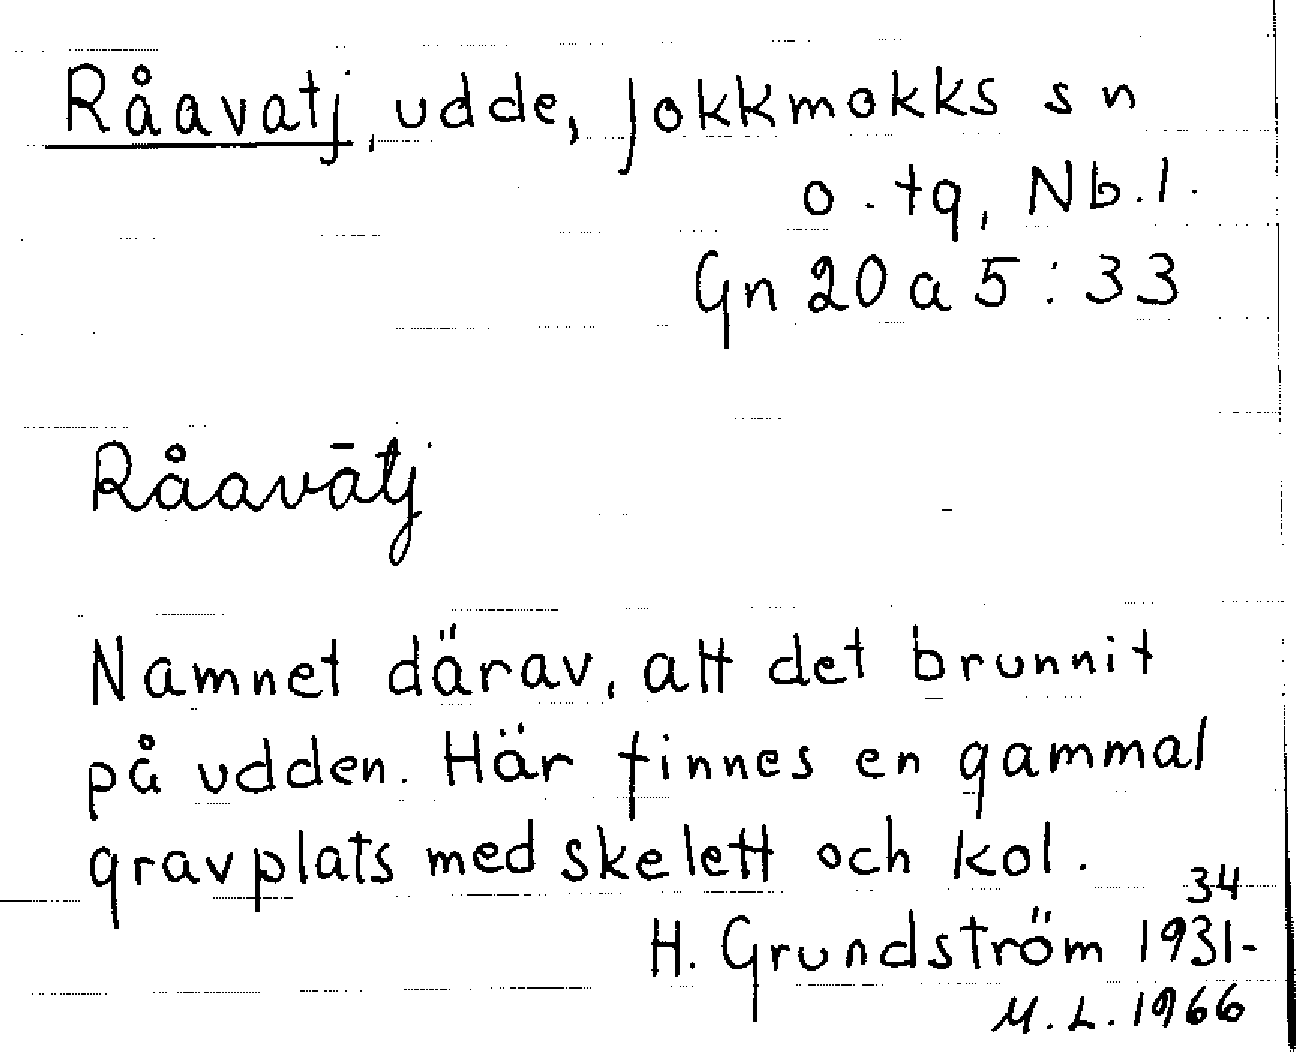 Råavatj, udde, Jokkmokks sn
o. tg, Nb. l.
Gn 20 a 5:33
Råavātj
Namnet därav, att det brunnit
på udden. Här finnes en gammal
gravplats med skelett och kol.
H. Grundström 1931-34
M.L. 1966